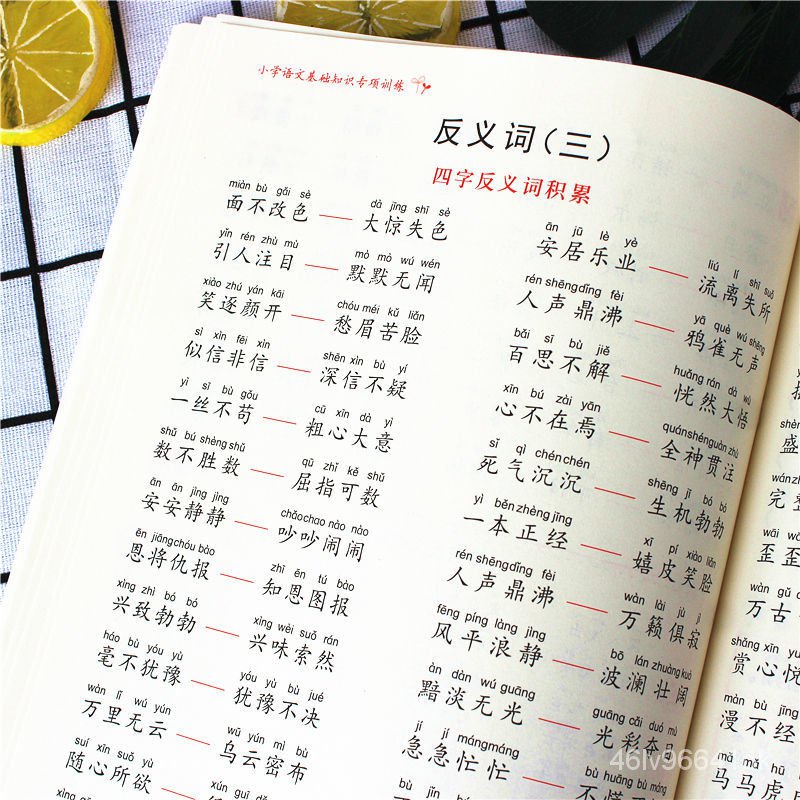 小学语文基础知识专项训练
反义词（三）
四字反义词积累
miàn bù gǎi sè dà jīng shī sè
面不改色——大惊失色
yǐn rén zhù mù mò mò wú wén
引人注目——默默无闻
xiào zhú yán kāi chóu méi kǔ liǎn
笑逐颜开——愁眉苦脸
sì xìn fēi xìn shēn xìn bù yí
似信非信——深信不疑
yì sī bù gǒu cū xīn dà yì
一丝不苟——粗心大意
shǔ bú shèng shǔ qū zhǐ kě shǔ
数不胜数——屈指可数
ān ān jìng jìng chǎo chao nào nào
安安静静——吵吵闹闹
ēn jiāng chóu bào zhī ēn tú bào
恩将仇报——知恩图报
xìng zhì bó bó xìng wèi suǒ rán
兴致勃勃——兴味索然
háo bù yóu yù yóu yù bù jué
毫不犹豫——犹豫不决
wàn lǐ wú yún wū yún mì bù
万里无云——乌云密布
suí xīn suǒ yù xún guī
随心所欲——
ān jū lè yè liú lí shī suǒ
安居乐业——流离失所
rén shēng dǐng fèi yā què wú shēng
人声鼎沸——鸦雀无声
bǎi sī bù jiě huǎng rán dà wù
百思不解——恍然大悟
xīn bú zài yān quán shén guàn zhù
心不在焉——全神贯注
sǐ qì chén chén shēng jī bó bó
死气沉沉——生机勃勃
yì běn zhèng jīng xī pí xiào liǎn
一本正经——嬉皮笑脸
rén shēng dǐng fèi wàn lài jù jì
人声鼎沸——万籁俱寂
fēng píng làng jìng bō lán zhuàng kuò
风平浪静——波澜壮阔
àn dàn wú guāng guāng cǎi duó mù
黯淡无光——光彩
jí jí máng máng bù huāng bù máng
急急忙忙——不慌
shèng
盛
wán zhěng
完整
wāi wāi
歪歪
wàn gǔ
万古
shǎng xīn yuè
赏心悦
màn bù jīng
漫不经
mǎ mǎ hǔ
马马虎
46lv9664